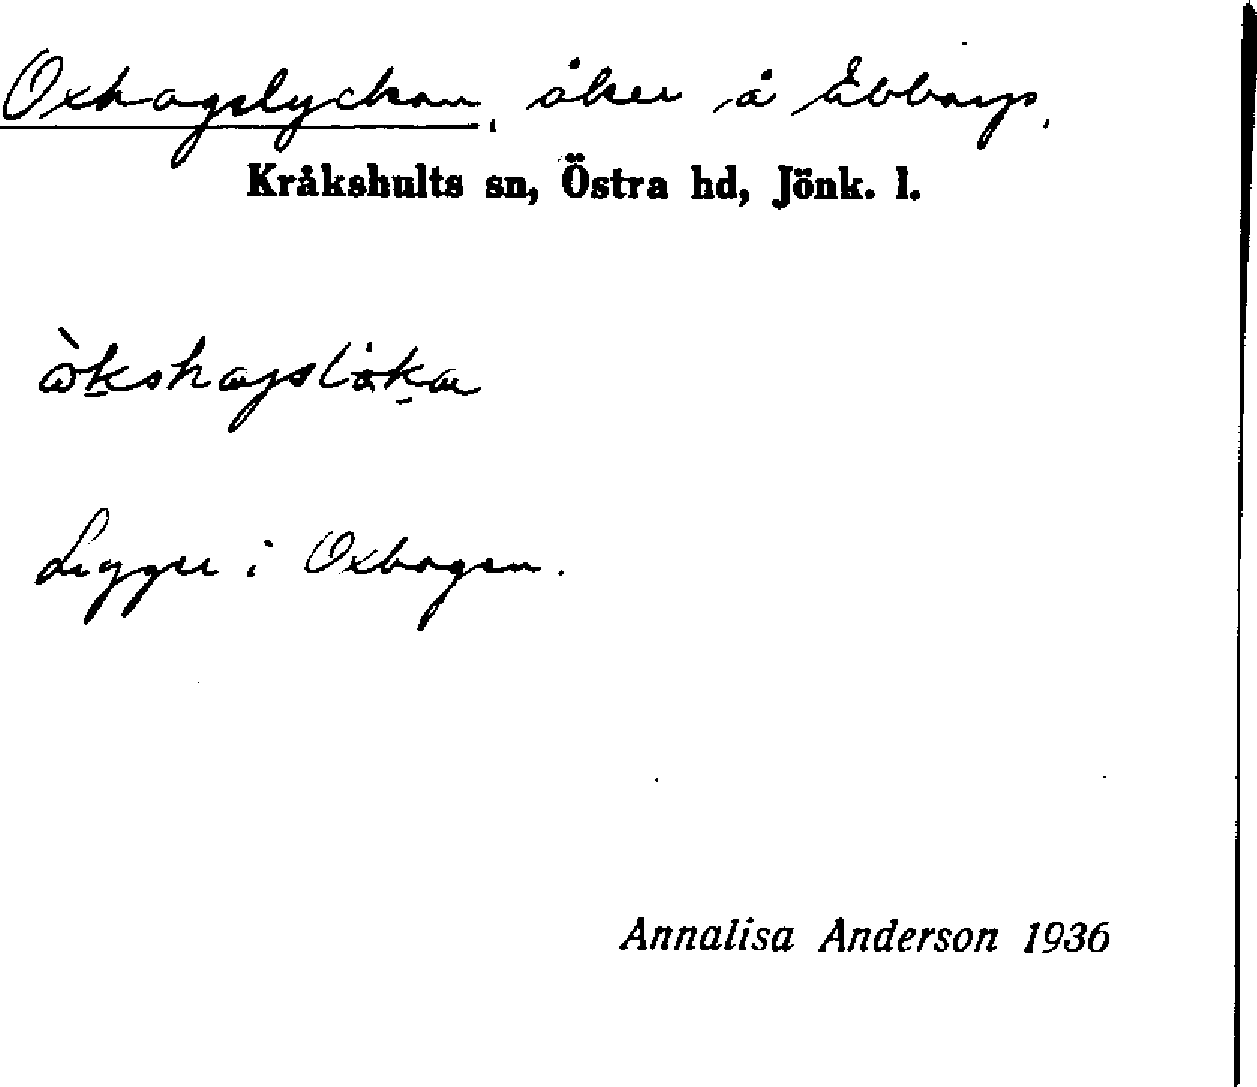 Oxhagslyckan, åker å Ebbarp,
Kråkshults sn, Östra hd, Jönk. l.
Ligger i Oxhagen.
Annalisa Anderson 1936